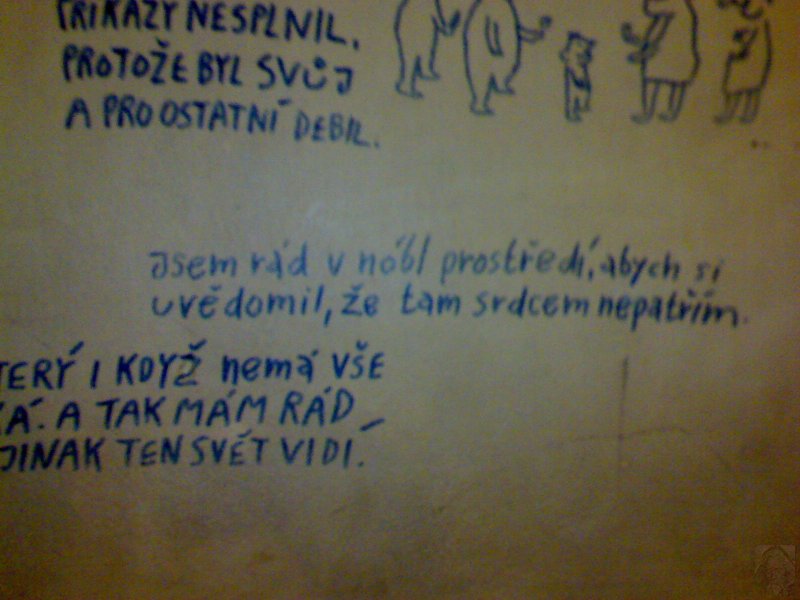 PŘÍKAZY NESPLNIL,
PROTOŽE BYL SVŮJ
A PRO OSTATNÍ DEBIL.
Jsem rád v nóbl prostředí, abych si
uvědomil, že tam srdcem nepatřím.
TERÝ I KDYŽ nemá VŠE
KÁ. A TAK MÁM RÁD
JINAK TEN SVĚT VIDÍ.